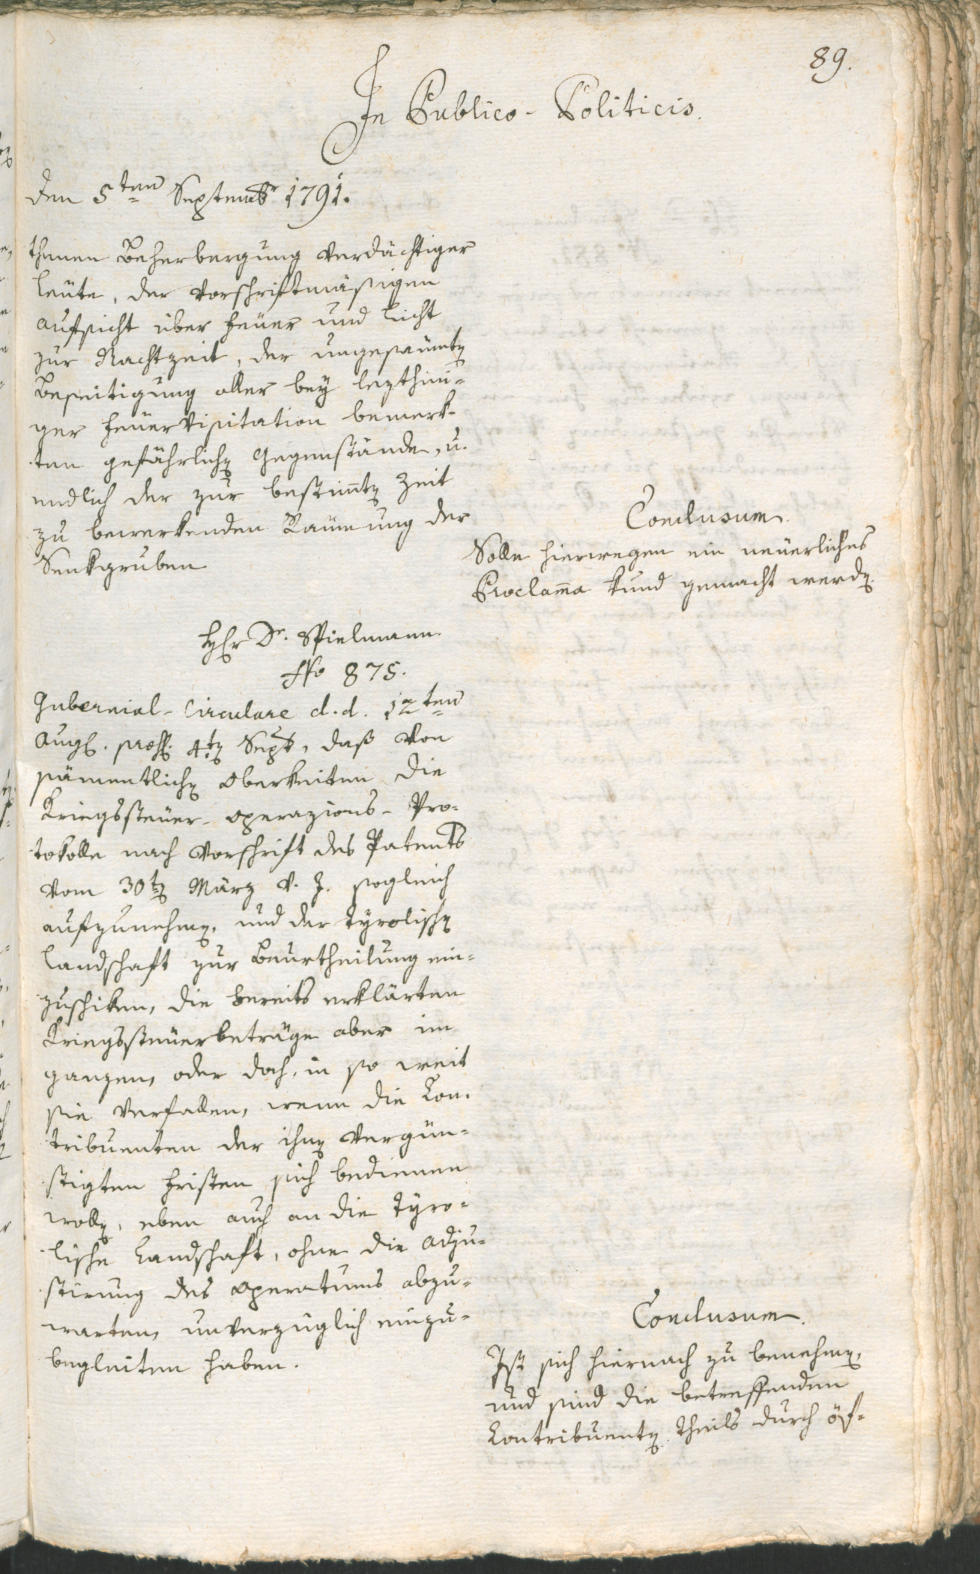 89.
In Publico-Politicis.
den 5ten Septembr 1791.
thenen Beherbergung verdächtiger
Leüte, der vorschriftmäsigen
Aufsicht über Feüer und Licht
zur Nachtzeit, der ungesäumtn
Beseitigung aller bey lezthini-
ger Feüervisitation bemerk-
ten gefährlichn Gegenstände, u.
endlich der zur bestimtn Zeit
zu bewerkenden Räumung der
Senkgruben
Conclusum.
Solle hierwegen ein neüerliches
Proclama kund gemacht werdn.
HEr Dr. Spielmann.
No 875.
Gubernial-Circulare d.d. 12ten
Aug. præs. 4tn Sept, daß von
sämentlichn Oberkeiten die
Kriegssteüer-Operazions-Pro-
tokolle nach Vorschrift des Patents
vom 30tn März v. J. sogleich
aufzunehmn, und der Tyrolischn
Landschaft zur Beurtheilung ein-
zuschiken, die bereits erklärten
Kriegssteüerbeträge aber im
ganzen, oder doch, in so weit
sie verfallen, wenn die Kon-
tribuenten der ihnn vergün-
stigten Fristen sich bedienen
wolln, eben auch an die Tyro-
lische Landschaft, ohne die Adju-
stirung des Operatums abzu-
warten, unverzüglich einzu-
begleiten haben.
Conclusum.
Ist sich hiernach zu benehmn,
und sind die betreffenden
Kontribuentn theils durch öf-